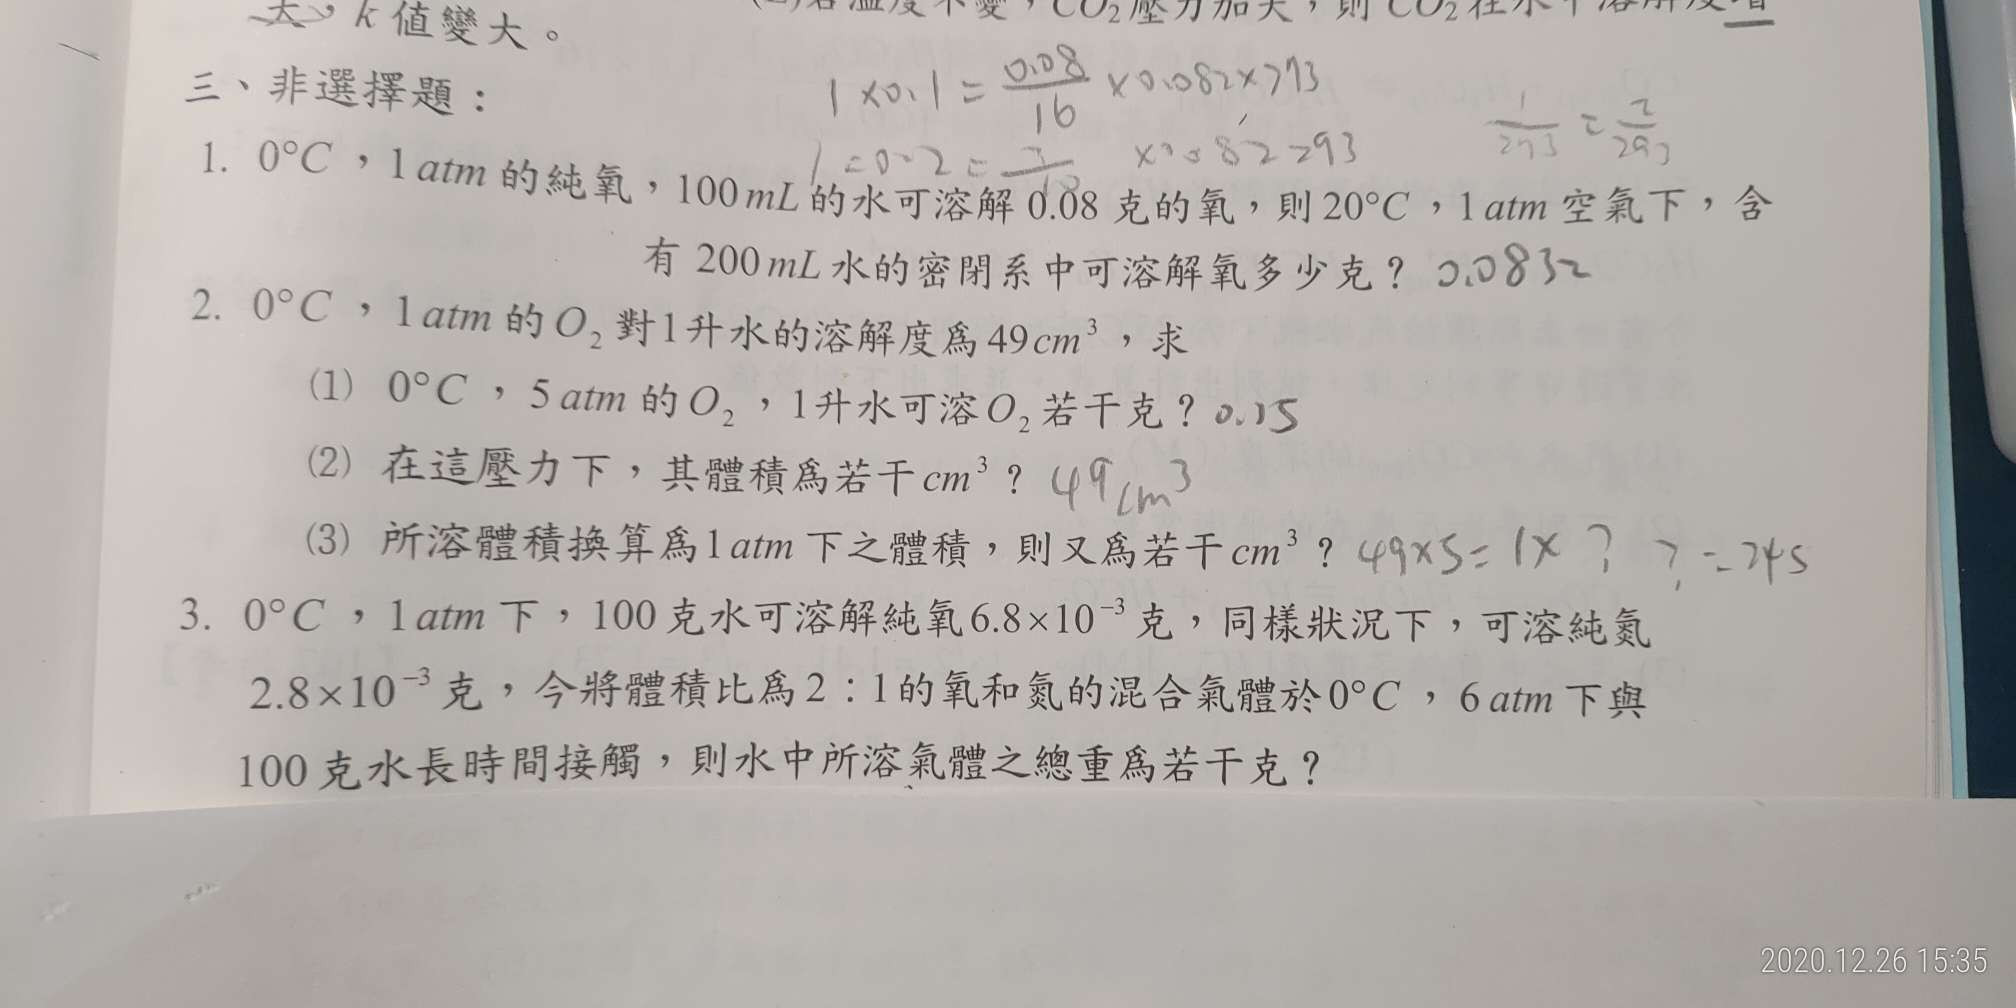 大，k值變大。
CO₂壓力加大，則CO₂在水中溶解度增
三、非選擇題：
1×0.1=0.08/16×0.082×273
1. 0°C，1atm的純氧，100mL的水可溶解0.08克的氧，則20°C，1atm空氣下，含
有200mL水的密閉系中可溶解氧多少克？0.0832
2. 0°C，1atm的O₂對1升水的溶解度為49cm³，求
(1) 0°C，5atm的O₂，1升水可溶O₂若干克？0.35
(2) 在這壓力下，其體積為若干cm³？49cm³
(3) 所溶體積換算為1atm下之體積，則又為若干cm³？49×5=1×? ?=245
3. 0°C，1atm下，100克水可溶解純氧6.8×10⁻³克，同樣狀況下，可溶純氮
2.8×10⁻³克，今將體積比為2：1的氧和氮的混合氣體於0°C，6atm下與
100克水長時間接觸，則水中所溶氣體之總重為若干克？
2020.12.26 15:35